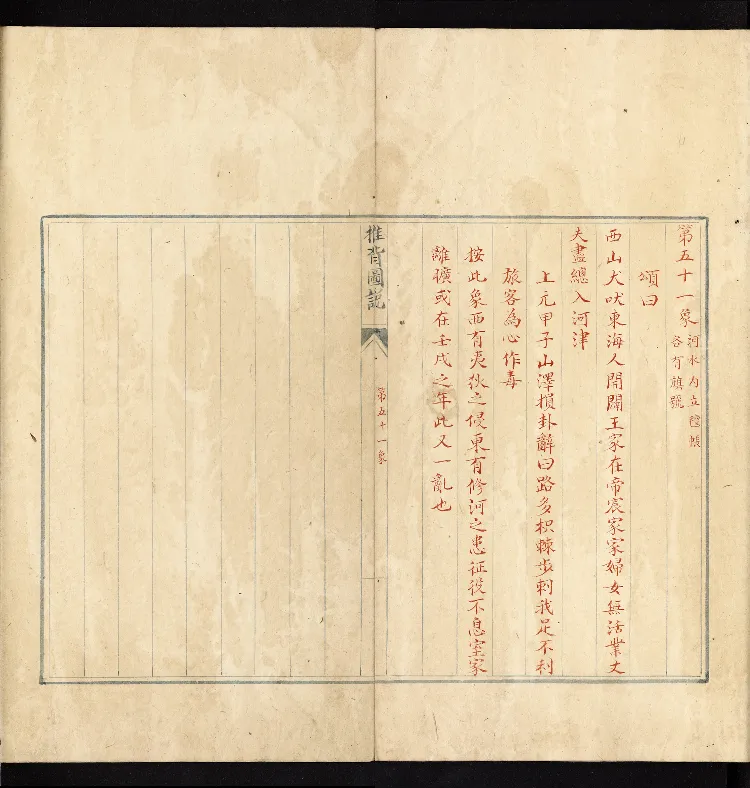 第五十一象
河水內立
帳
各有旗號
頌曰
西山犬吠東海人開闢王家在帝宸家家婦女無活業丈
夫盡總入河津
上元甲子山澤損卦辭曰路多枳棘步刺我足不利
旅客為心作毒
按此象西有夷狄之侵東有修河之患征役不息室家
離曠或在壬戌之年此又一亂也
推背圖說
第五十一象